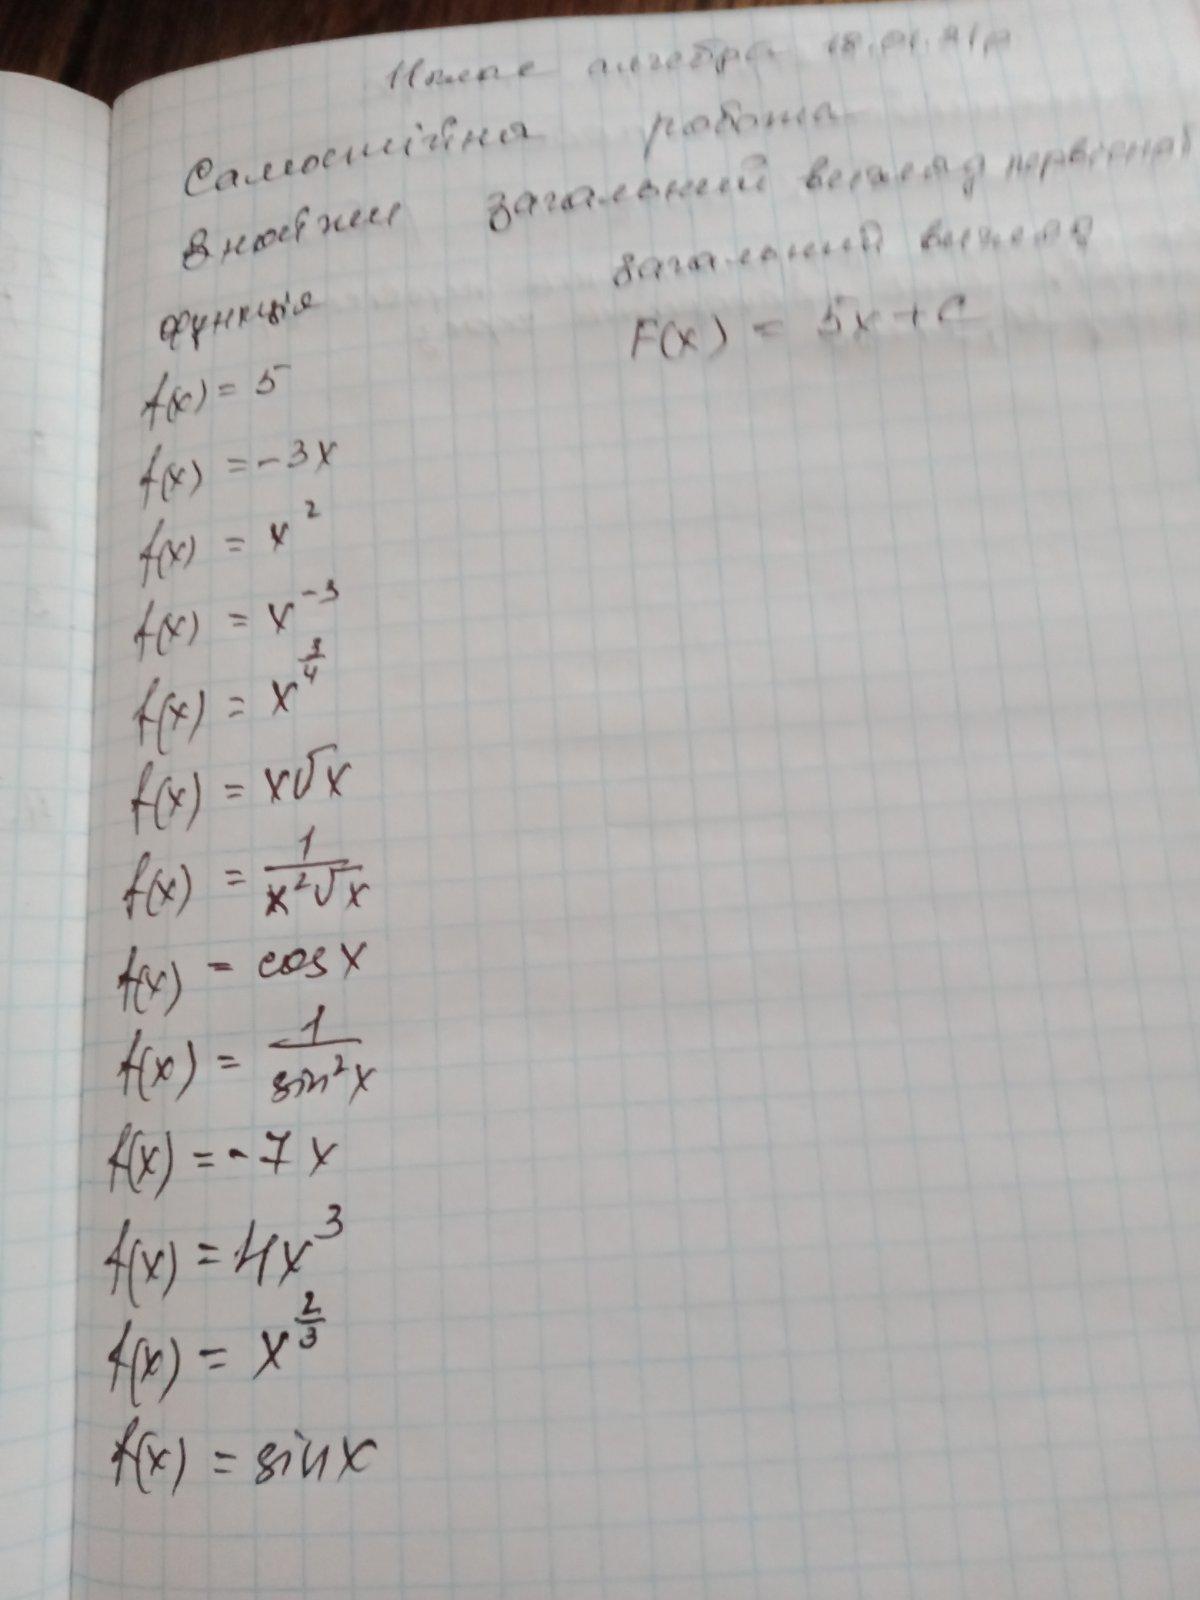 11 клас алгебра 18.01.21р
Самостійна робота
Знайти загальний вигляд первісної
функція загальний вигляд
f(x) = 5 F(x) = 5x + C
f(x) = -3x
f(x) = x²
f(x) = x⁻³
f(x) = x^(3/4)
f(x) = x√x
f(x) = 1/(x²√x)
f(x) = cos x
f(x) = 1/(sin²x)
f(x) = -7x
f(x) = 4x³
f(x) = x^(2/3)
f(x) = sin x